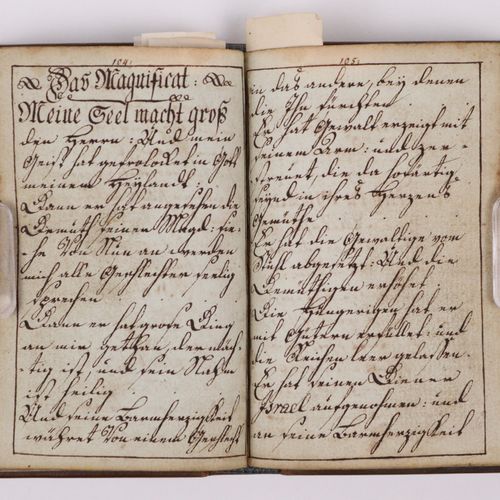 104.
Das Magnificat:
Meine Seel macht groß
den Herrn: Und mein
Geist hat gefrolocket in Gott
meinem Heylandt.
Dann er hat angesehen die
Demuth seiner Magd: sie-
he Von Nun an werden
mich alle Geschlechter seelig
sprechen
Dann er hat grose Ding
an mir gethan, der mäch-
tig ist, und sein Nahm
ist heilig.
Und seine Barmherzigkeit
währet Von einem Geschlecht
105.
in das andere, bey denen
die Ihn fürchten.
Er hat Gewalt erzeigt mit
seinem Arm: und zer-
streuet, die da hofärtig
seynd in ihres Herzens
Gemüthe.
Er hat die Gewaltige vom
Stuhl abgesetzt: Und die
Demüthigen erhöhet.
Die Hungerigen hat er
mit Gütern erfüllet: und
die Reichen leer gelassen.
Er hat seinen Diener
Israel aufgenomen: und
an seine Barmherzigkeit